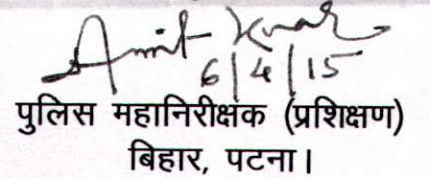 Amit Kumar
6/4/15
पुलिस महानिरीक्षक (प्रशिक्षण)
बिहार, पटना।